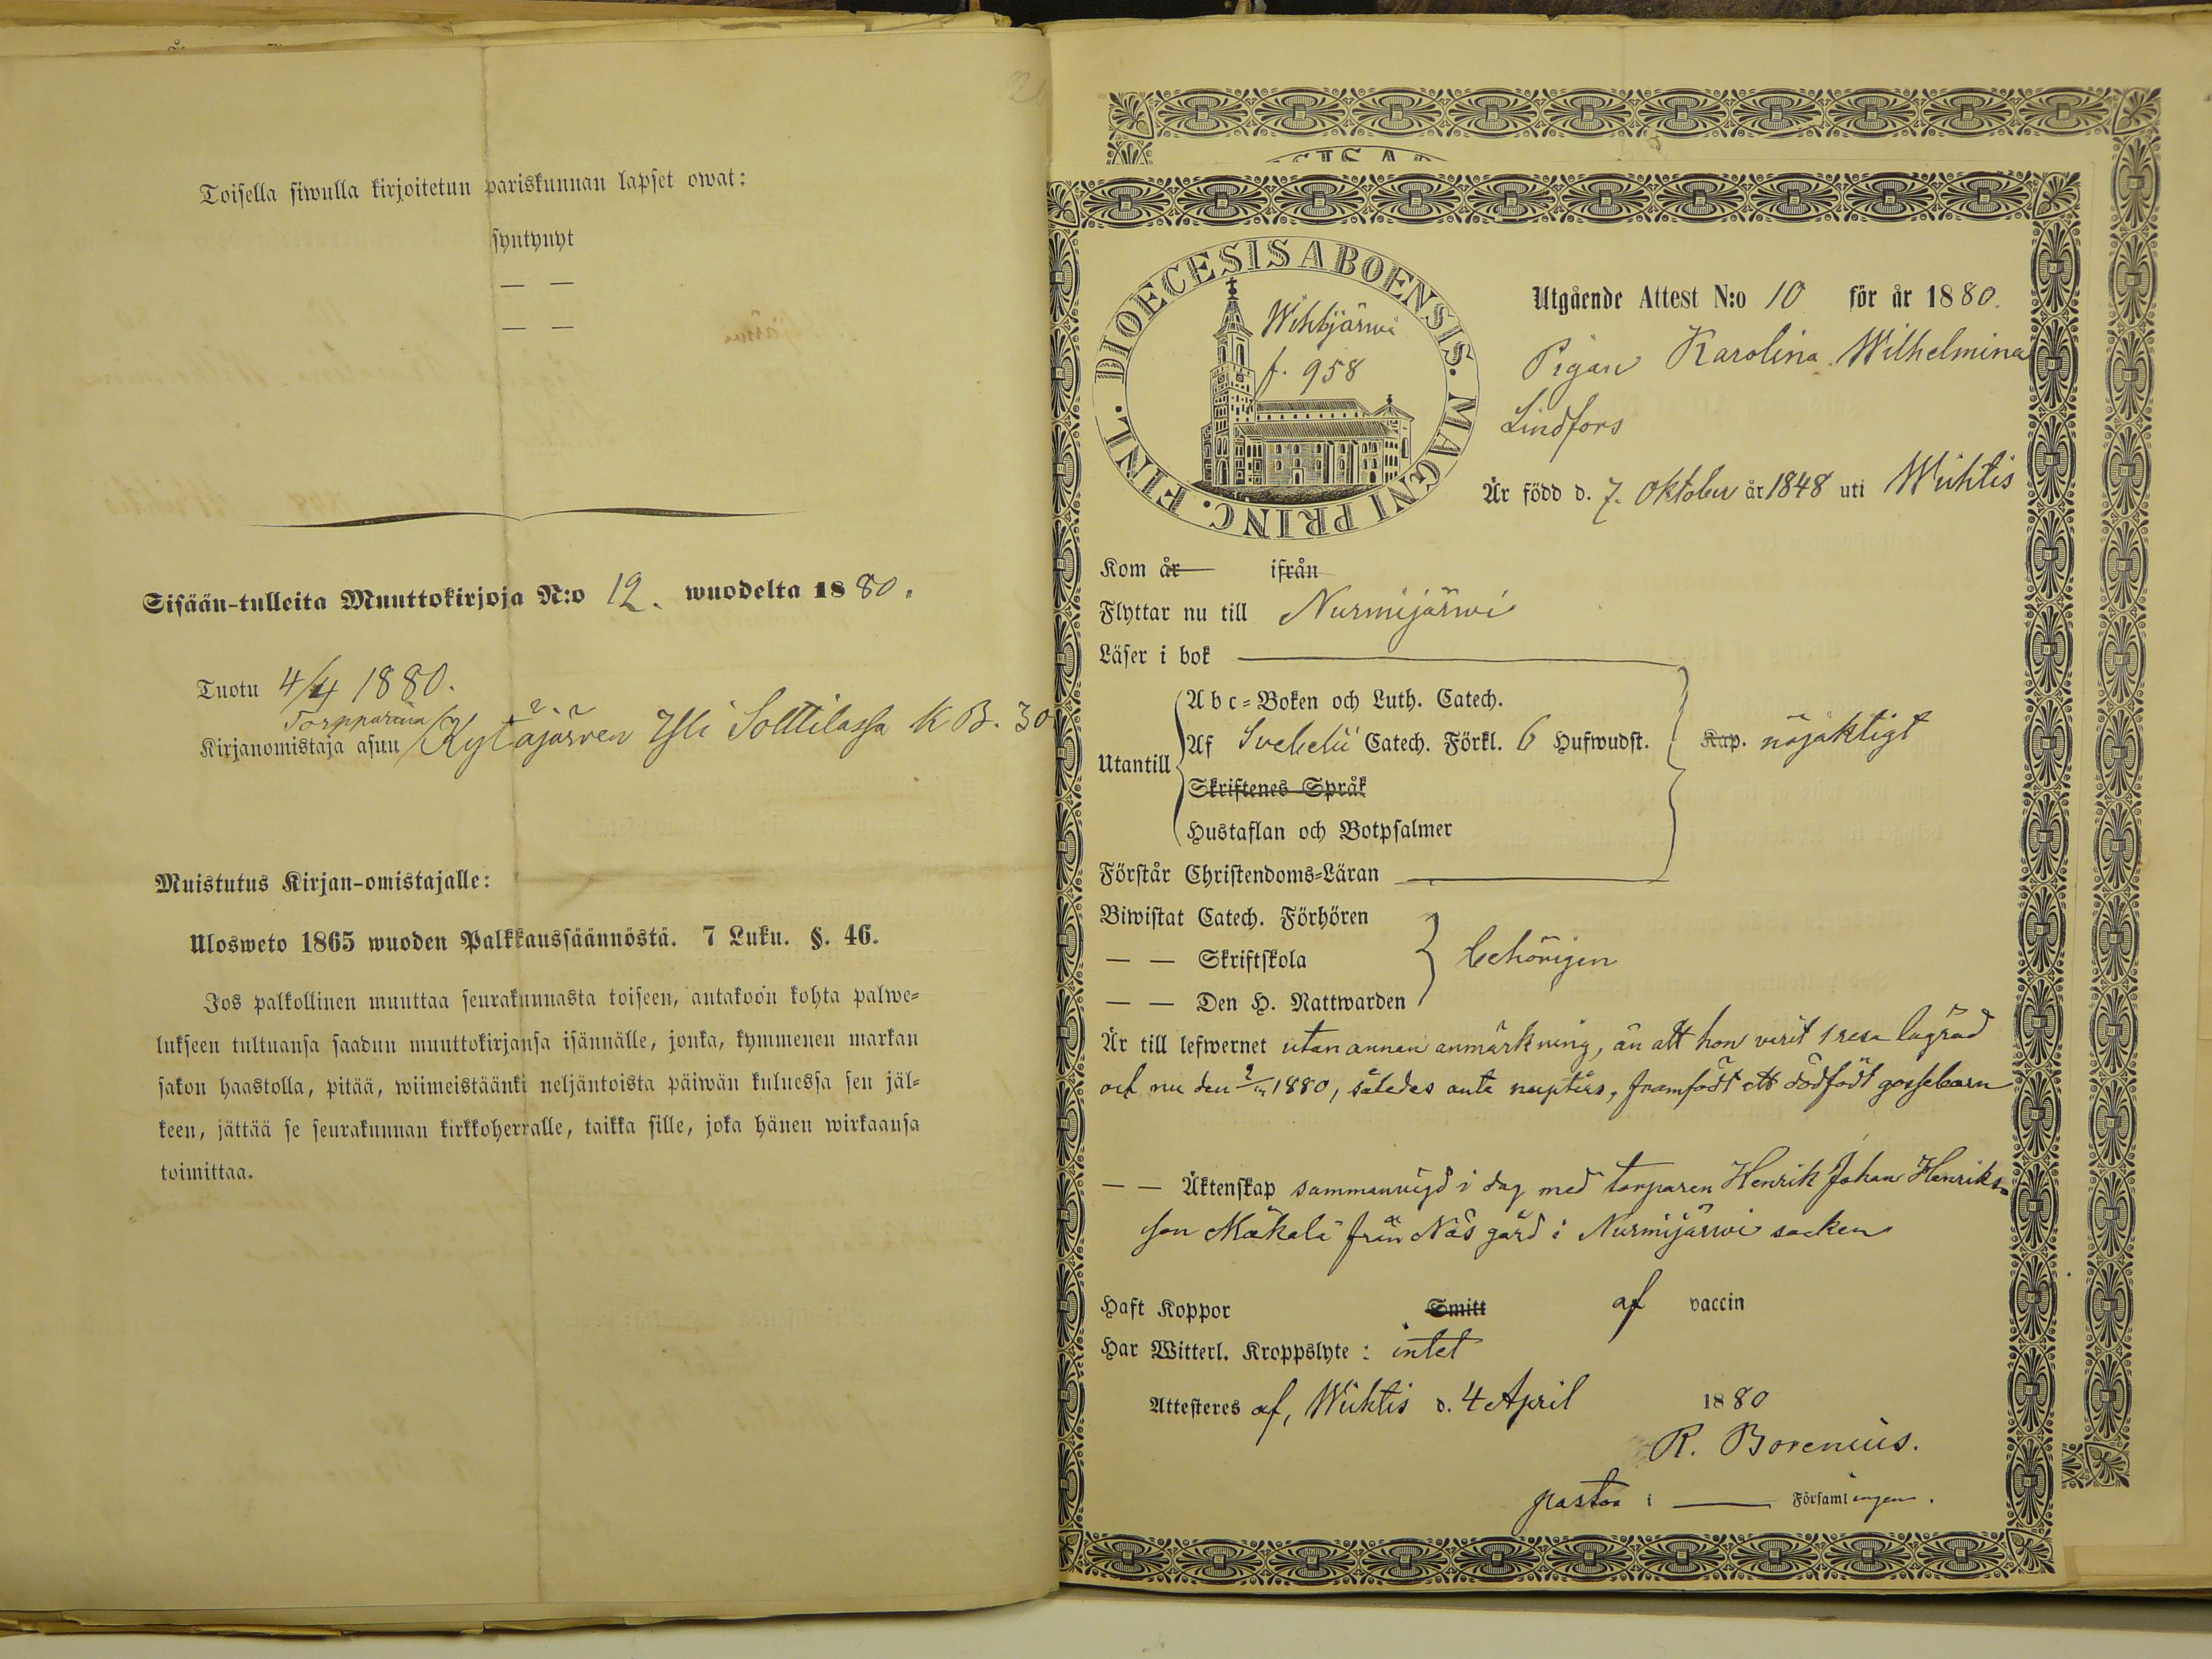 Toisella siwulla kirjoitetun pariskunnan lapset owat:
syntynyt
— —
— —
Sisään-tulleita Muuttokirjoja N:o 12. wuodelta 1880.
Tuotu 4/4 1880.
Torpparina
Kirjanomistaja asuu Kytäjärven Yli Solttilassa K B. 30
Muistutus Kirjan-omistajalle:
Ulosweto 1865 wuoden Palkkaussäännöstä. 7 Luku. §. 46.
Jos palkollinen muuttaa seurakunnasta toiseen, antakoon kohta palwe=
lukseen tultuansa saadun muuttokirjansa isännälle, jonka, kymmenen markan
sakon haastolla, pitää, wiimeistäänki neljäntoista päiwän kuluessa sen jäl=
keen, jättää se seurakunnan kirkkoherralle, taikka sille, joka hänen wirkaansa
toimittaa.
DIOECESIS ABOENSIS. MAGNI PRINC. FINL.
Wihtijärvi
f. 958
Utgående Attest N:o 10 för år 1880.
Pigan Karolina Wilhelmina
Lindfors
Är född d. 7. Oktober år 1848 uti Wichtis
Kom år ifrån
Flyttar nu till Nurmijärwi
Läser i bok
Utantill
A b c=Boken och Luth. Catech.
Af Svebelii Catech. Förkl. 6 Hufwudst.
Kap. nöjaktigt
Skriftenes Språk
Hustaflan och Botpsalmer
Förstår Christendoms=Läran
Biwistat Catech. Förhören
— — Skriftskola
behörigen
— — Den H. Nattwarden
Är till lefwernet utan annan anmärkning, än att hon varit 1 resa lägrad
och nu den 1880, således ante nuptias, framfödt ett dödfödt gossebarn
— — Äktenskap sammanvigd i dag med torparen Henrik Johan Henriks-
son Mäkelä från Näs gård i Nurmijärwi socken
Haft Koppor Smitt af vaccin
Har Witterl. Kroppslyte: intet
Attesteres af, Wichtis d. 4 April 1880
R. Borenius.
pastor i — Församlingen.